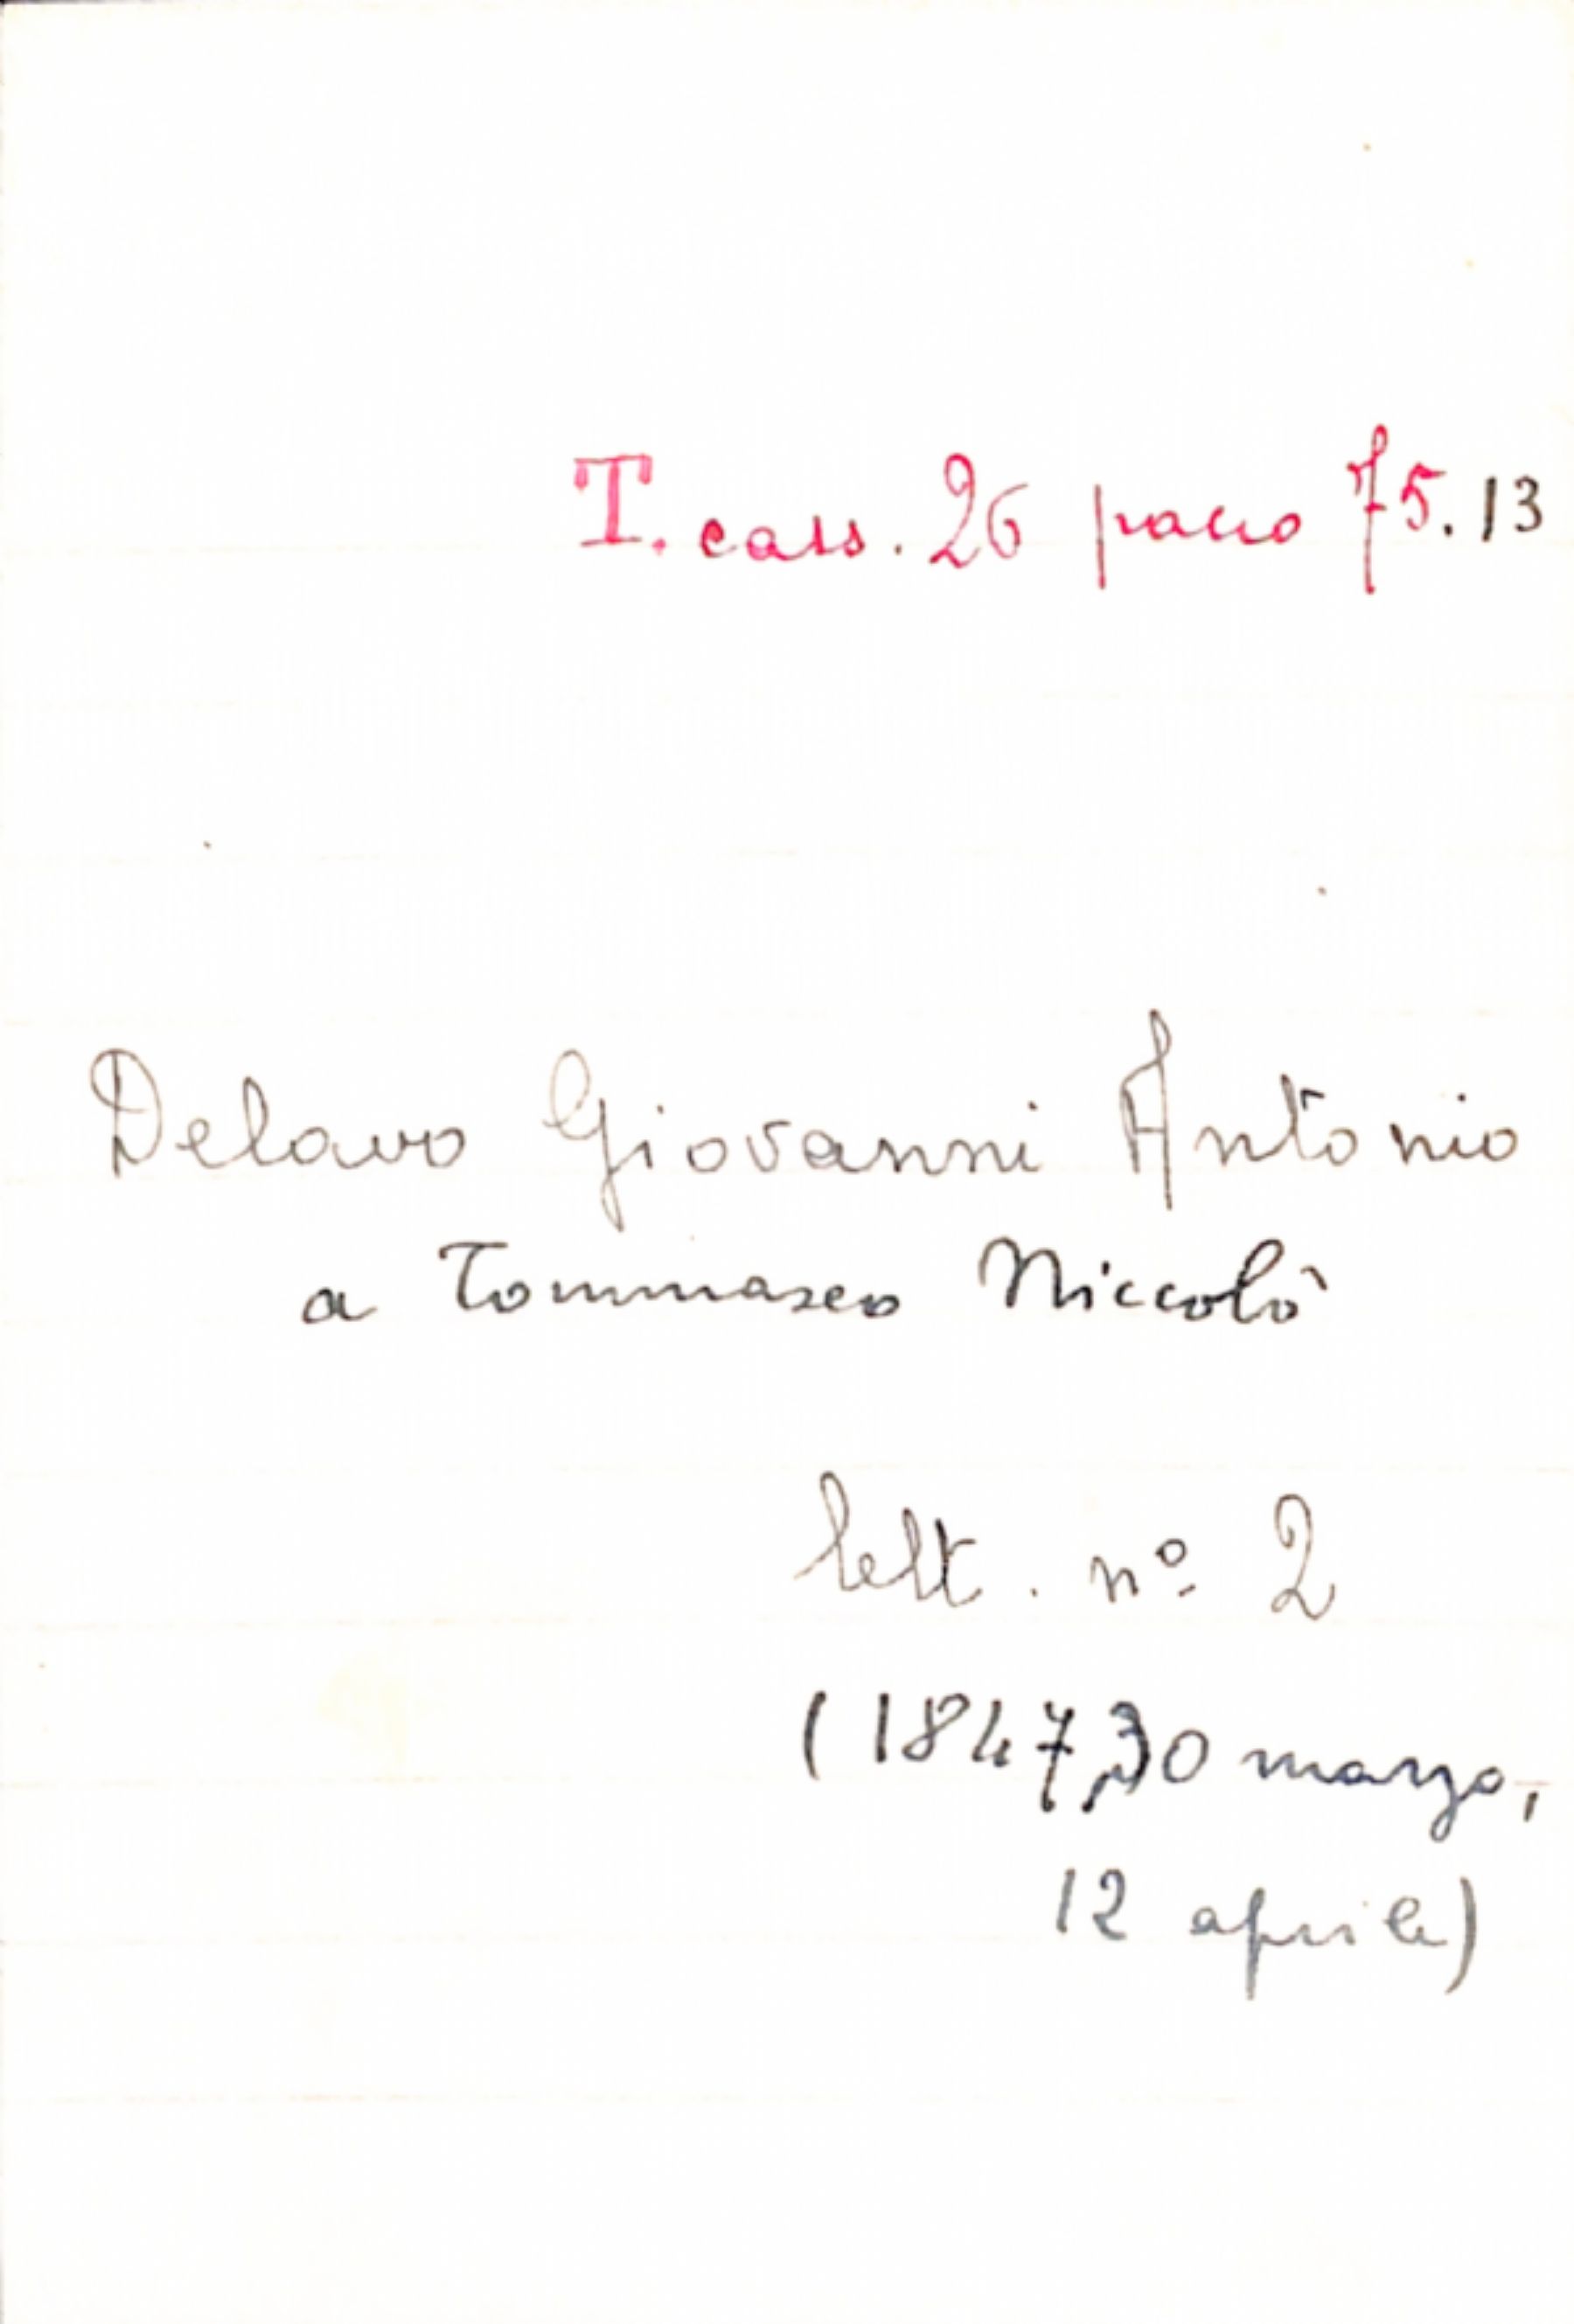 T. cass. 26 pacco 75.13
Delavo Giovanni Antonio
a Tommaseo Niccolò
lett. nº 2
(1847, 30 marzo,
12 aprile)